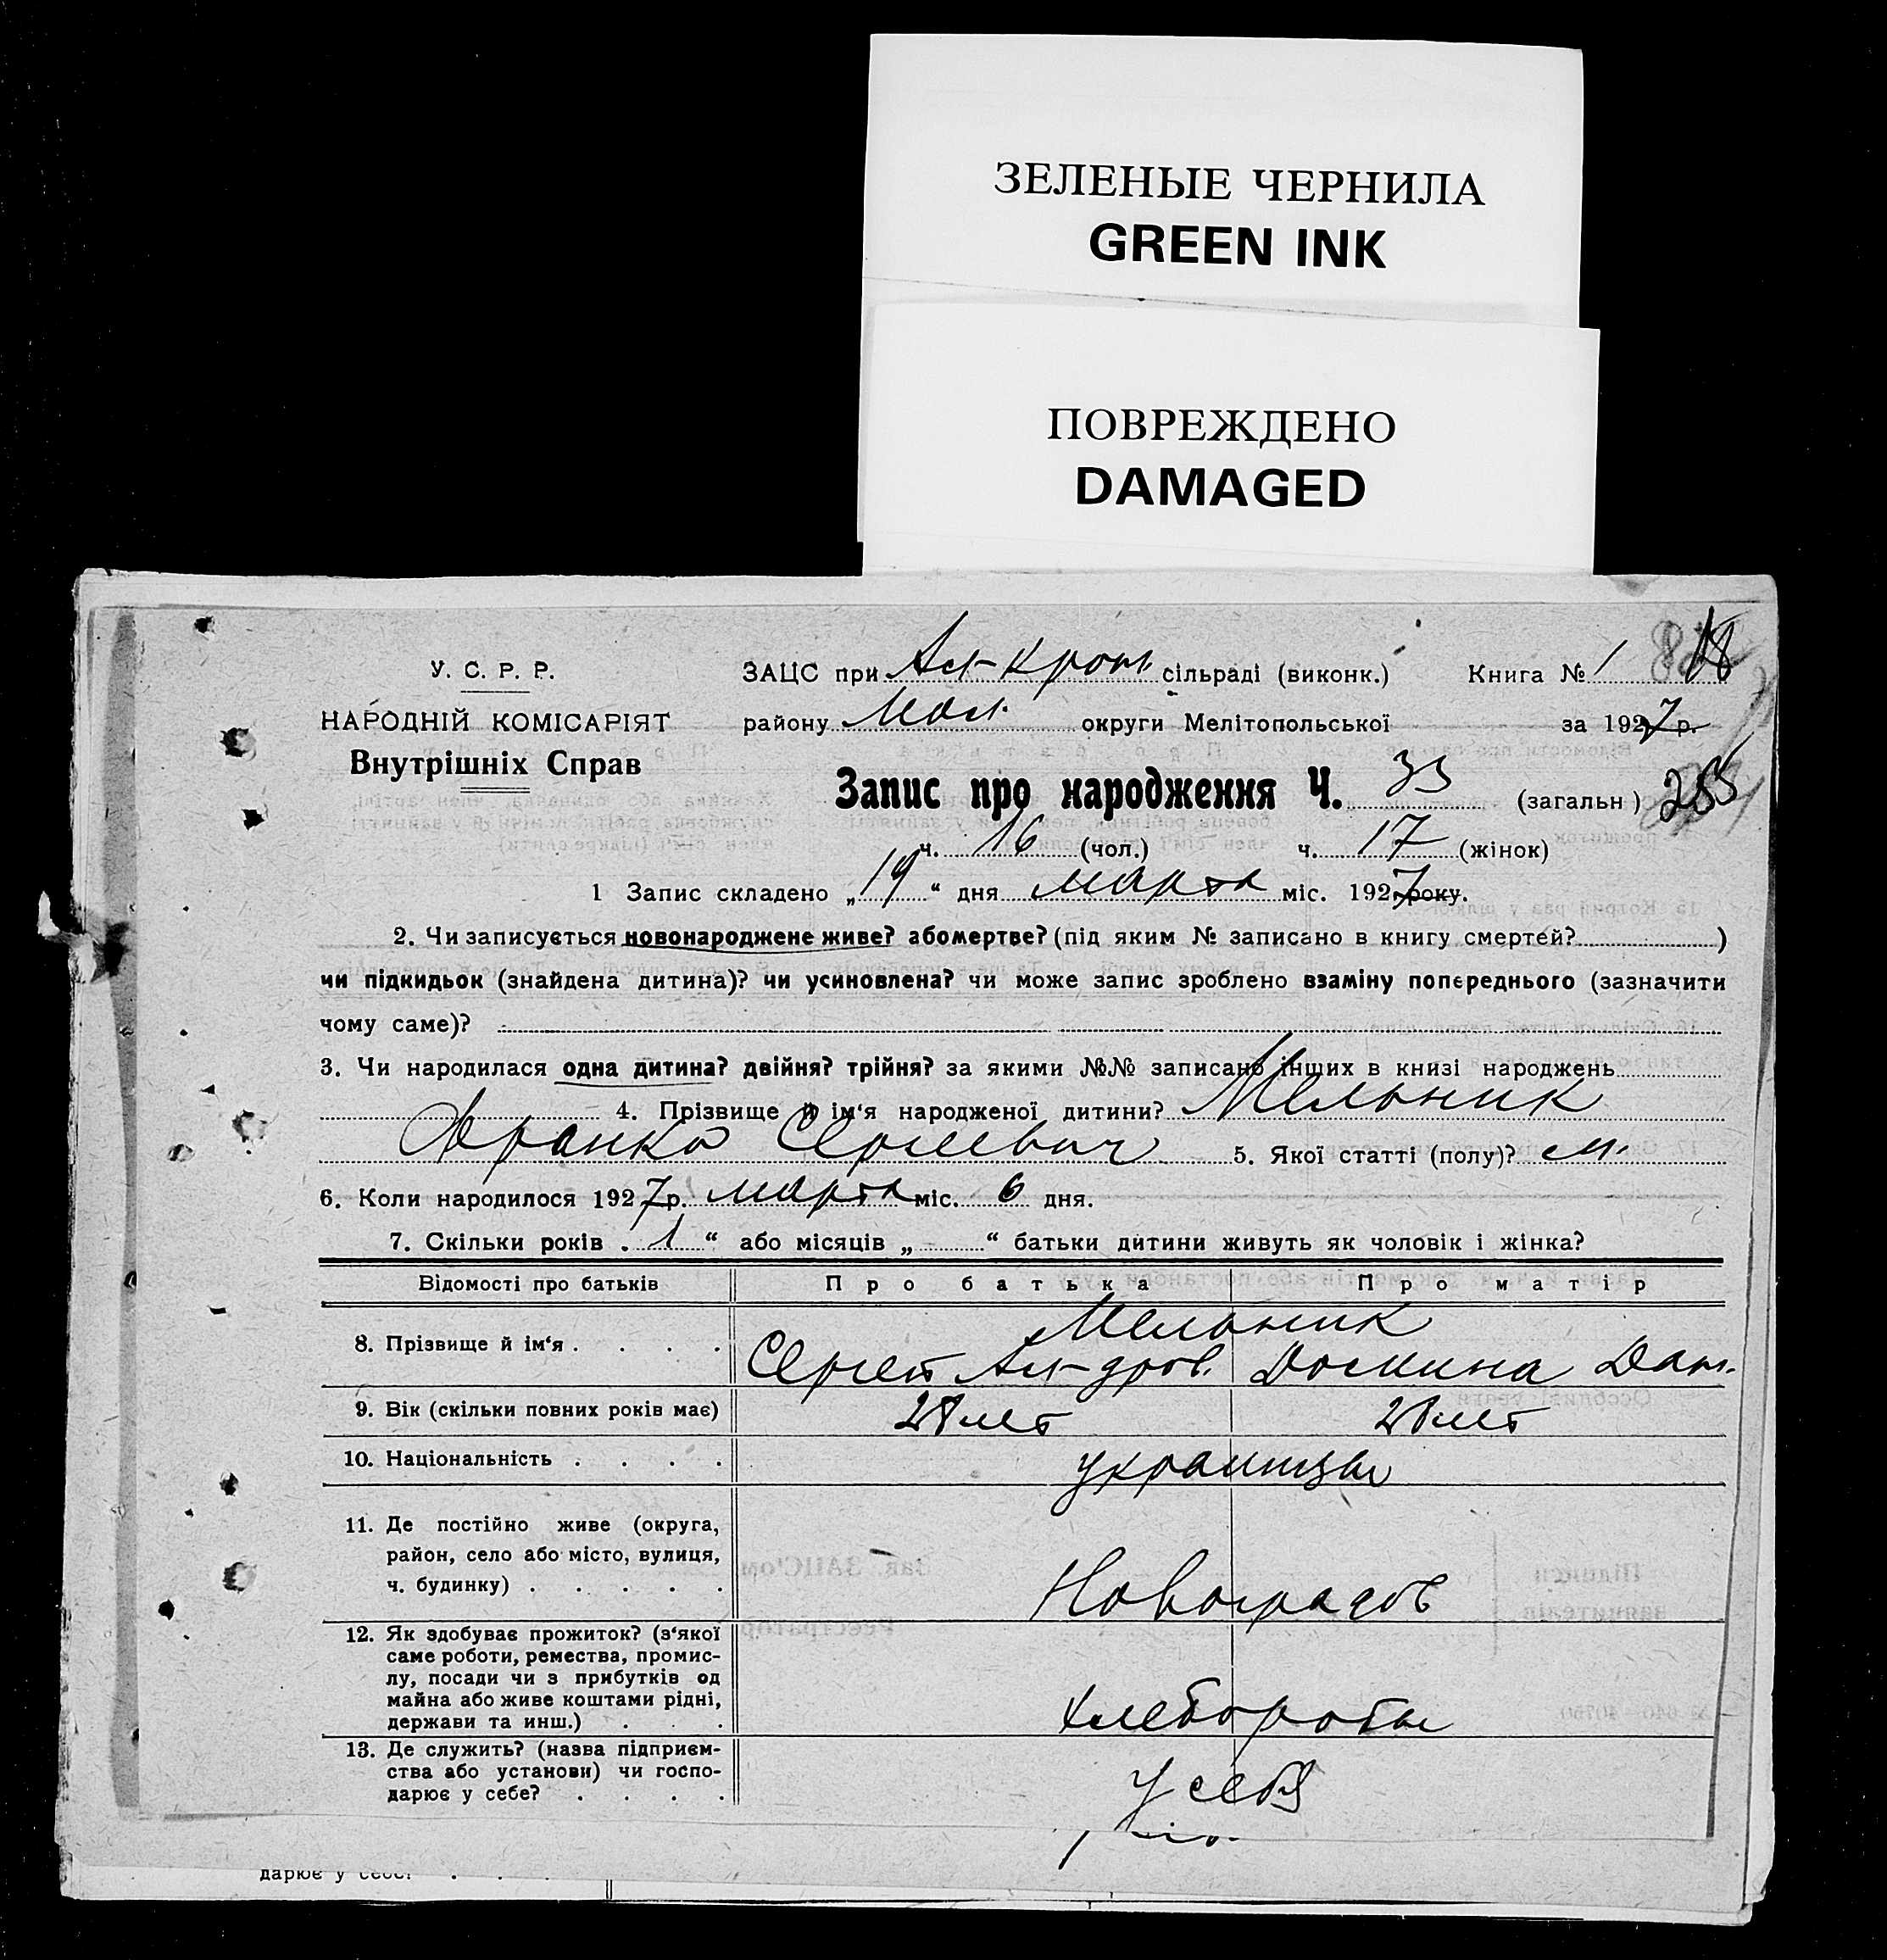 ЗЕЛЕНЫЕ ЧЕРНИЛА
GREEN INK
ПОВРЕЖДЕНО
DAMAGED
У. С. Р. Р.
НАРОДНІЙ КОМІСАРІЯТ
Внутрішніх Справ
ЗАЦС при сільраді (виконк.) Книга № 1 18
району округи Мелітопольської за 1927 р.
Запис про народження Ч. 33 (загальн)
ч. 16 (чол.) ч. 17 (жінок)
1 Запис складено „19“ дня марта міс. 1927 року.
2. Чи записується новонароджене живе? або мертве? (під яким № записано в книгу смертей? )
чи підкидьок (знайдена дитина)? чи усиновлена? чи може запис зроблено взаміну попереднього (зазначити
чому саме)?
3. Чи народилася одна дитина? двійня? трійня? за якими №№ записано інших в книзі народжень
4. Прізвище й ім'я народженої дитини? Мельник
Франко Сергеевич 5. Якої статті (полу)? м.
6. Коли народилося 1927 р. марта міс. 6 дня.
7. Скільки років „1“ або місяців „ “ батьки дитини живуть як чоловік і жінка?
Відомості про батьків Про батька Про матір
8. Прізвище й ім'я . . . . Мельник
Сергей Ал-дров. Домнина Дан.
9. Вік (скільки повних років має) 28 лет 28 лет
10. Національність . . . . украинцы
11. Де постійно живе (округа,
район, село або місто, вулиця,
ч. будинку) . . . . . Новоградов
12. Як здобуває прожиток? (з'якої
саме роботи, ремества, промис-
лу, посади чи з прибутків од
майна або живе коштами рідні,
держави та инш.) . . . хлеборобы
13. Де служить? (назва підприєм-
ства або установи) чи госпо-
дарює у себе? . . . . У себя
дарює у себе?